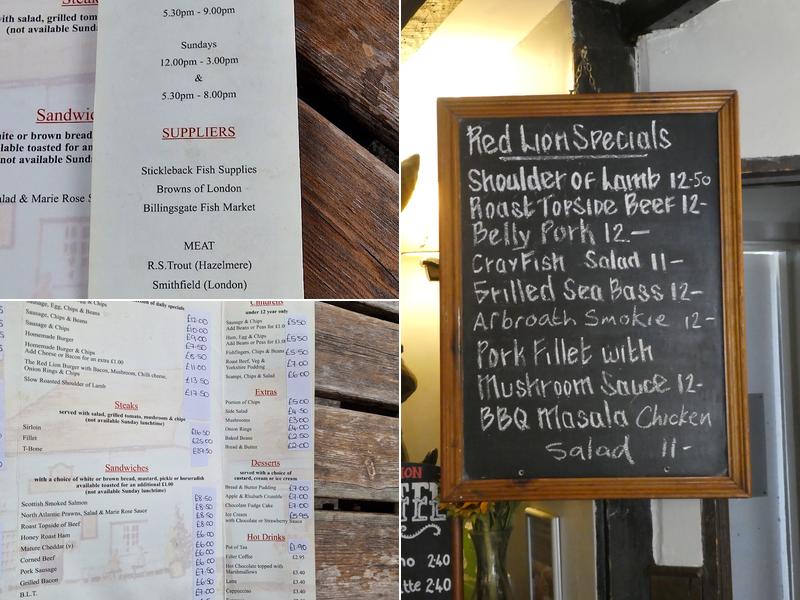 Steak
with salad, grilled tom
(not available Sunda
Sandwic
ite or brown bread
lable toasted for an
not available Sunda
alad & Marie Rose S
5.30pm - 9.00pm
Sundays
12.00pm - 3.00pm
&
5.30pm - 8.00pm
SUPPLIERS
Stickleback Fish Supplies
Browns of London
Billingsgate Fish Market
MEAT
R.S.Trout (Hazelmere)
Smithfield (London)
Red Lion Specials
Shoulder of Lamb 12-50
Roast Topside Beef 12-
Belly Pork 12.-
CrayFish Salad 11-
Grilled Sea Bass 12-
Arbroath Smokie 12-
Pork Fillet with
Mushroom Sauce 12-
BBQ Masala Chicken
Salad 11-
ION
no 240
tte 240
Sausage, Egg, Chips & Beans £12.00
Sausage, Chips & Beans £10.00
Sausage & Chips £9.00
Homemade Burger £7.50
Homemade Burger & Chips £8.50
Add Cheese or Bacon for an extra £1.00
The Red Lion Burger with Bacon, Mushroom, Chilli cheese, £11.00
Onion Rings & Chips £13.50
Slow Roasted Shoulder of Lamb £17.50
Steaks
served with salad, grilled tomato, mushroom & chips
(not available Sunday lunchtime)
Sirloin £16.50
Fillet £25.00
T-Bone
Sandwiches
with a choice of white or brown bread, mustard, pickle or horseradish
available toasted for an additional £1.00
(not available Sunday lunchtime)
Scottish Smoked Salmon £8.50
North Atlantic Prawns, Salad & Marie Rose Sauce £8.50
Roast Topside of Beef £8.00
Honey Roast Ham £6.00
Mature Cheddar (v) £6.00
Corned Beef £6.00
Pork Sausage £7.50
Grilled Bacon £6.50
B.L.T. £7.50
Childrens
under 12 year only
Sausage & Chips £5.50
Add Beans or Peas for £1.0
Ham, Egg & Chips £5.50
Add Beans or Peas for £1.0
Fishfingers, Chips & Beans £5.50
Roast Beef, Veg & £7.00
Yorkshire Pudding
Scampi, Chips & Salad £6.00
Extras
Portion of Chips £5.00
Side Salad £4.50
Mushrooms £3.00
Onion Rings £4.00
Baked Beans £2.50
Bread & Butter £2.00
Desserts
served with a choice of
custard, cream or ice cream
Bread & Butter Pudding £7.00
Apple & Rhubarb Crumble £7.00
Chocolate Fudge Cake £7.00
Ice Cream £5.95
with Chocolate or Strawberry Sauce
Hot Drinks
Pot of Tea £1.90
Filter Coffee £2.95
Hot Chocolate topped with
Marshmallows £3.40
Latte £3.40
Cappuccino £3.40